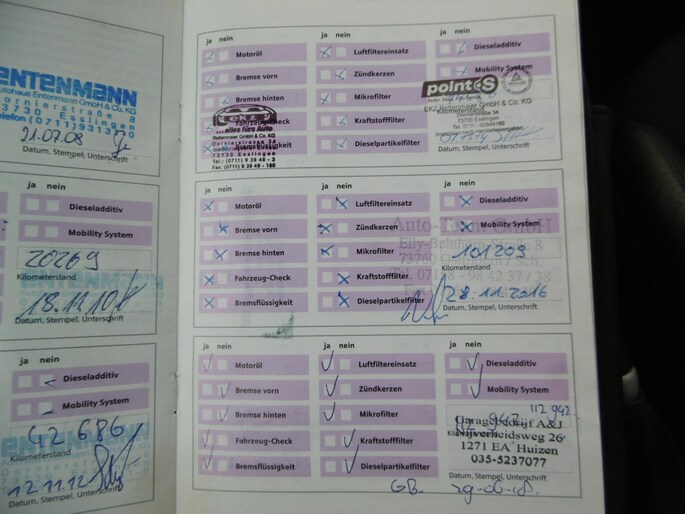 ENTENMANN
Autohaus Entenmann GmbH & Co. KG
73730 Esslingen
21.07.08
Datum, Stempel, Unterschrift
ja nein
Dieseladditiv
Mobility System
20269
Kilometerstand
18.12.10
Datum, Stempel, Unterschrift
ja nein
Dieseladditiv
Mobility System
42 686
Kilometerstand
12.11.12
Datum, Stempel, Unterschrift
ja nein
Motoröl
Bremse vorn
Bremse hinten
Fahrzeug-Check
Bremsflüssigkeit
ekz
...alles fürs Auto
Reitenmaier GmbH & Co. KG
Dornierstraße 34
73730 Esslingen
Tel.: (0711) 9 39 49 - 3
Fax: (0711) 9 39 49 - 180
ja nein
Luftfiltereinsatz
Zündkerzen
Mikrofilter
Kraftstofffilter
Dieselpartikelfilter
ja nein
Dieseladditiv
Mobility System
point S
Dornierstraße 34
73730 Esslingen
Datum, Stempel, Unterschrift
ja nein
Motoröl
Bremse vorn
Bremse hinten
Fahrzeug-Check
Bremsflüssigkeit
ja nein
Luftfiltereinsatz
Zündkerzen
Mikrofilter
Kraftstofffilter
Dieselpartikelfilter
ja nein
Dieseladditiv
Mobility System
101209
Kilometerstand
28.11.2016
Datum, Stempel, Unterschrift
ja nein
Motoröl
Bremse vorn
Bremse hinten
Fahrzeug-Check
Bremsflüssigkeit
ja nein
Luftfiltereinsatz
Zündkerzen
Mikrofilter
Kraftstofffilter
Dieselpartikelfilter
ja nein
Dieseladditiv
Mobility System
112 942
Garagebedrijf A&J
Nijverheidsweg 26
1271 EA Huizen
035-5237077
GB. 29-06-18.
Datum, Stempel, Unterschrift